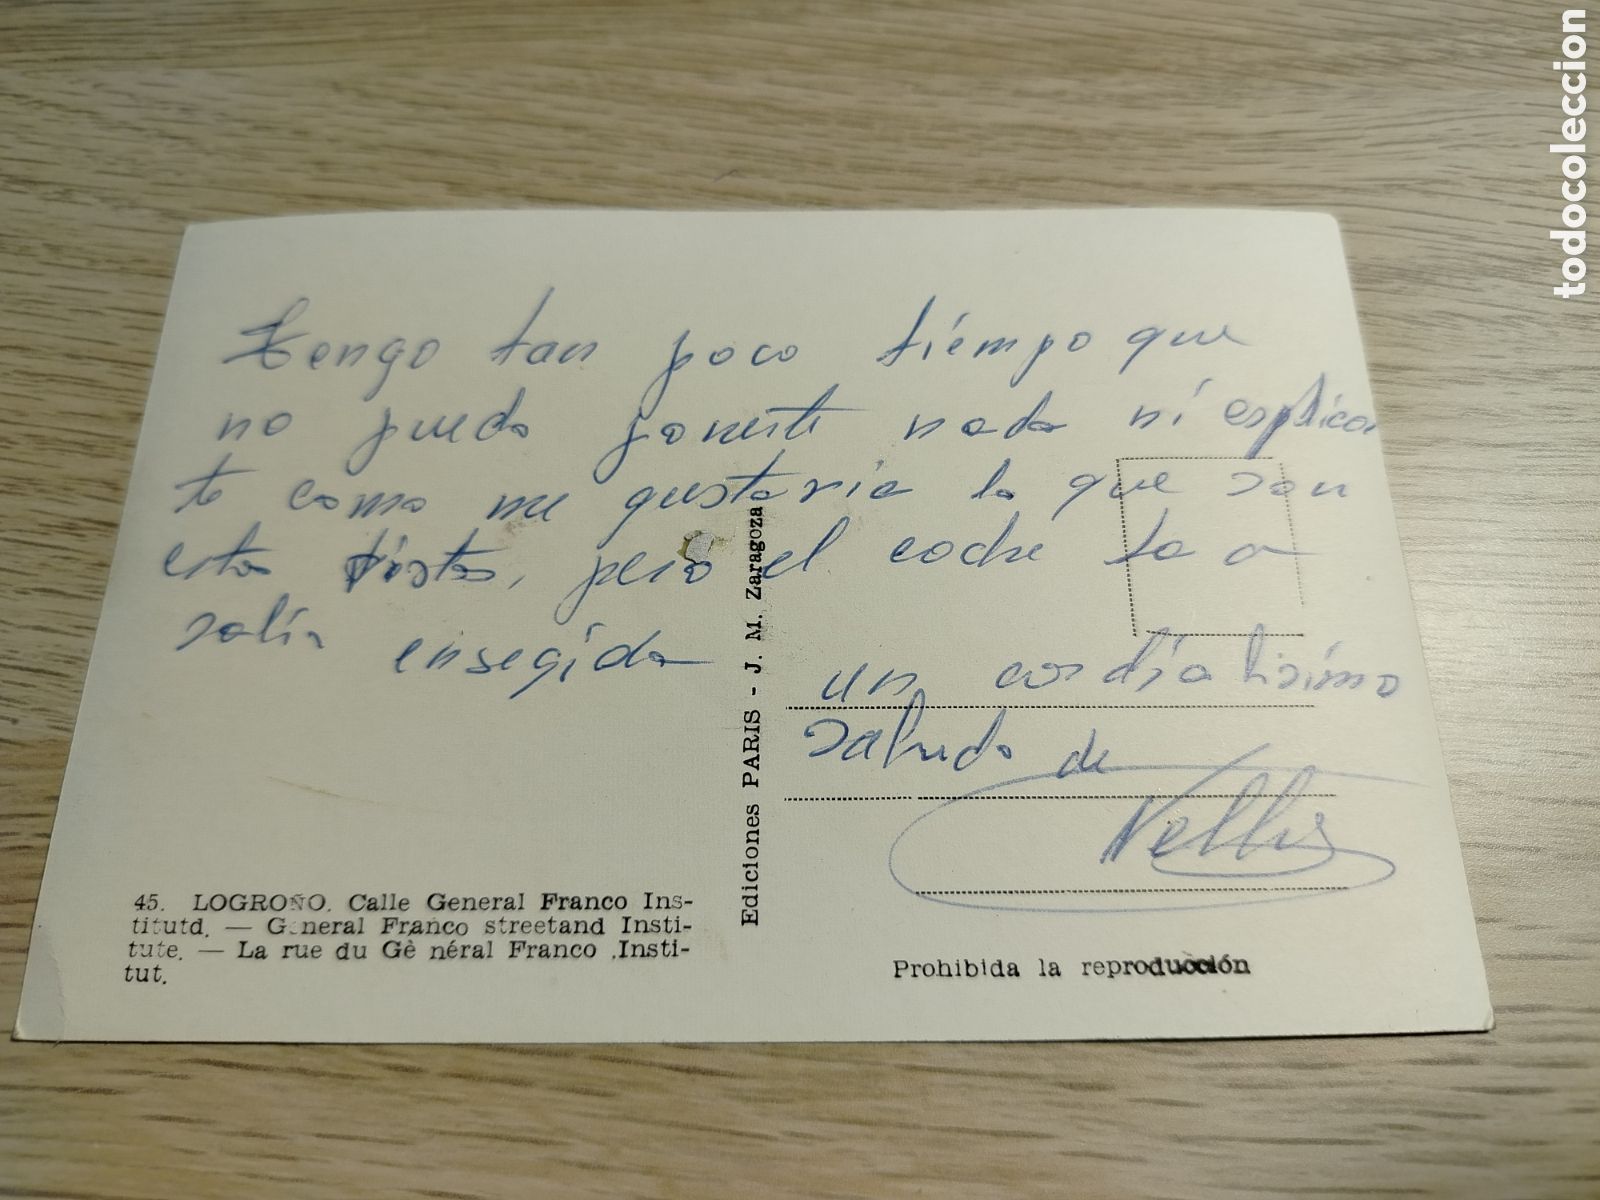 Tengo tan poco tiempo que
no puedo ponerte nada ni esplicar
te como me gustaria lo que son
estas fiestas, pero el coche ba a
salir ensegida
un cordialisimo
saludo de
45. LOGROÑO. Calle General Franco Ins-
titutd. — General Franco streetand Insti-
tute. — La rue du Gè néral Franco .Insti-
tut.
Ediciones PARIS - J. M. Zaragoza
Prohibida la reproducción
todocoleccion